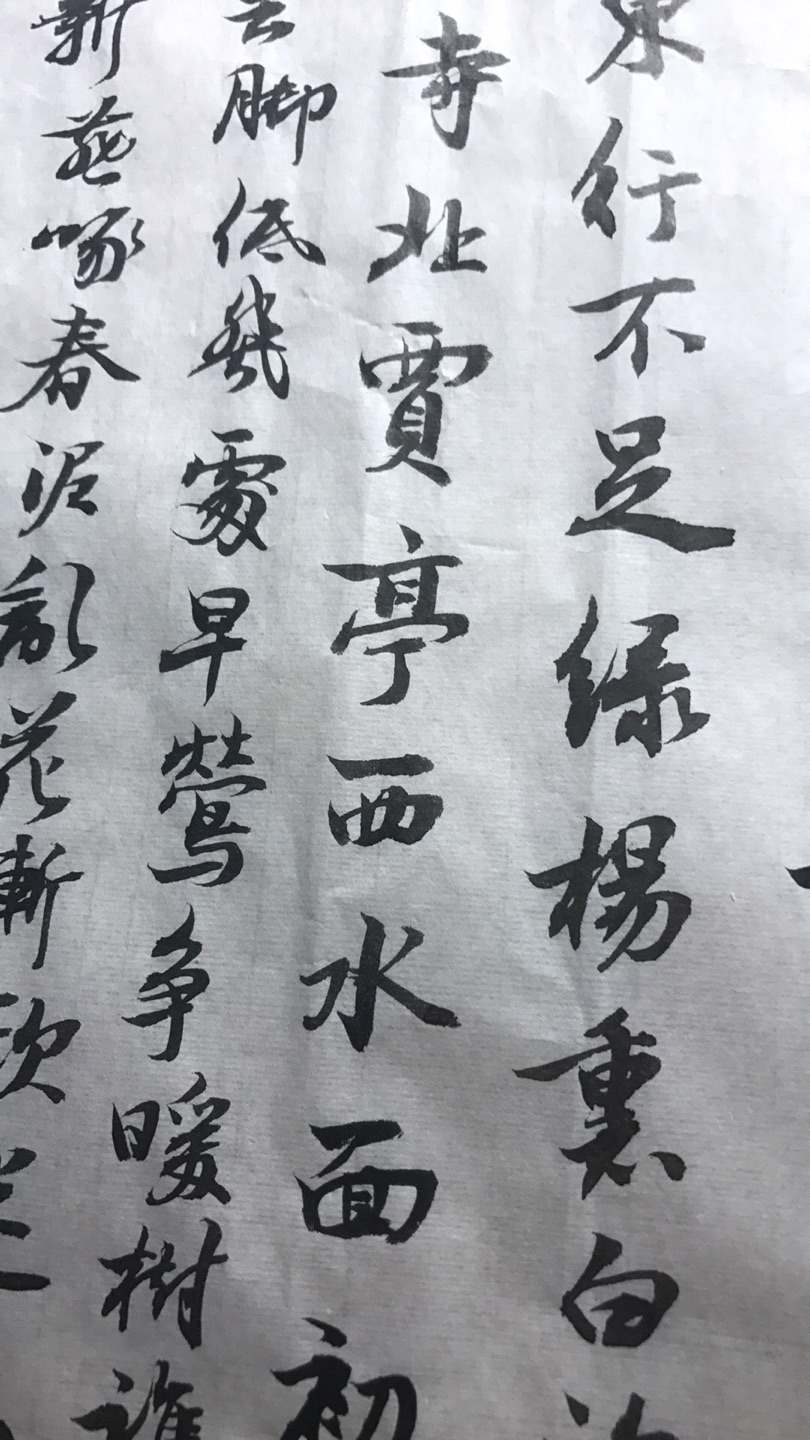 東行不足绿楊裏白
寺北賈亭西水面初
云脚低飛處早鶯争暖樹誰
新燕啄春泥亂花漸欲迷